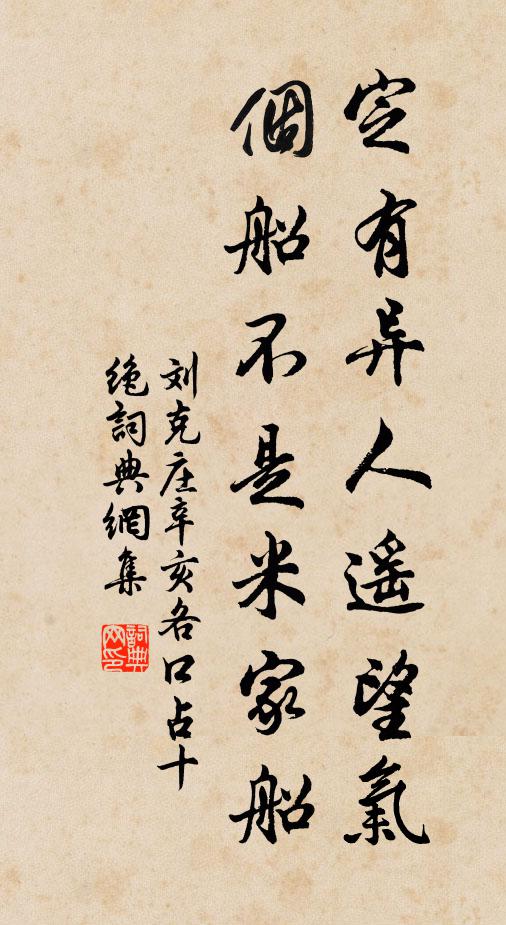 定有异人遥望氣
個船不是米家船
刘克庄辛亥各口占十
绝詞典網集
詞典
网印